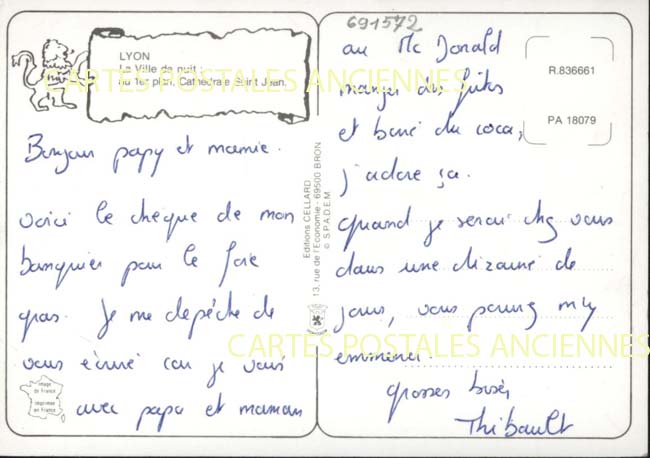 691572
LYON
La Ville de nuit :
au 1er plan, Cathédrale Saint Jean.
CARTES POSTALES ANCIENNES
Bonjour papy et mamie.
voici le chèque de mon
banquier pour le foie
gras. Je me depéche de
vous écrire car je vais
avec papa et maman
image
de France
imprimée
en France
Editions CELLARD
13, rue de l'Economie - 69500 BRON
© S.P.A.D.E.M
au Mc Donald
manger des frites
et boire du coca,
j'adore ça.
quand je serai chez vous
dans une dizaine de
jours, vous pourrez m'y
emmener.
grosses bises
Thibault
R.836661
PA 18079
CARTES POSTALES ANCIENNES